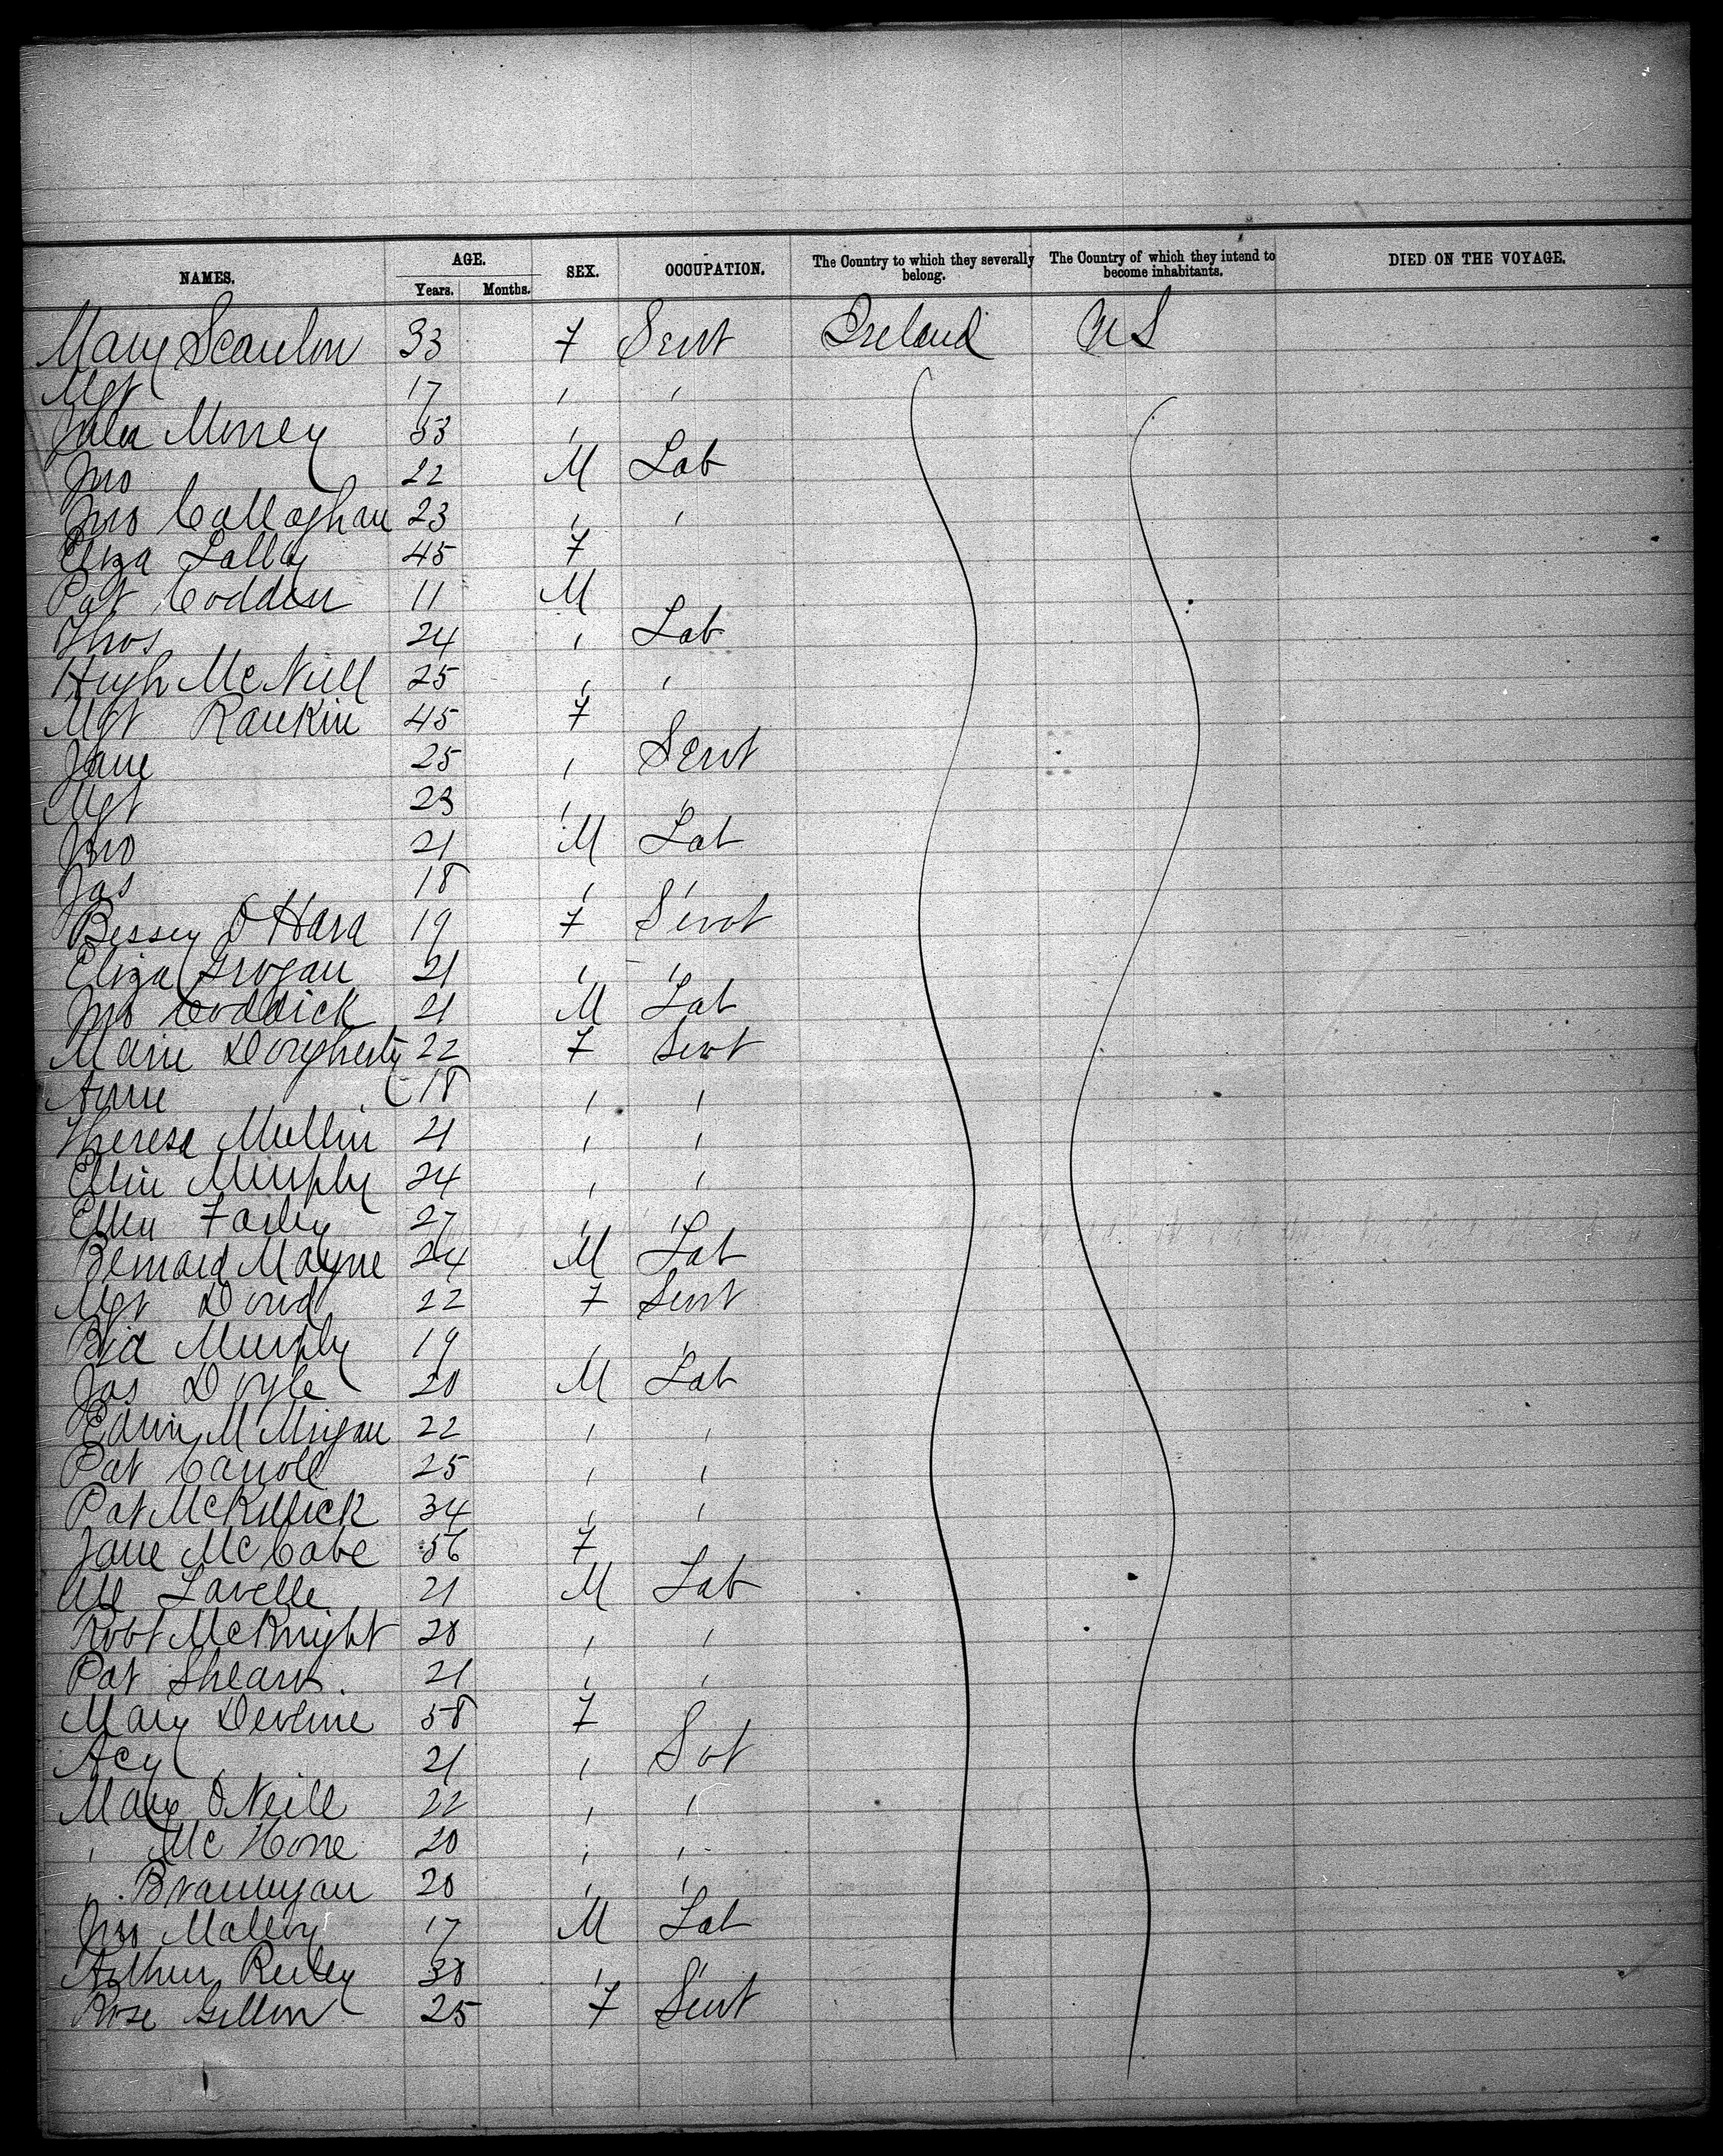 NAMES. AGE. SEX. OCCUPATION. The Country to which they severally belong. The Country of which they intend to become inhabitants. DIED ON THE VOYAGE.
Years. Months.
Mary Scanlon 33 F Servt Ireland US
Mgt 17 " "
Julia Morrey 53 "
Jno 22 M Lab
Jno Callaghan 23 " "
Eliza Lally 45 F
Pat Codden 11 M
Thos 24 " Lab
Hugh McNeill 25 " "
Mgt Rankin 45 F
Jane 25 " Servt
Mgt 23 " "
Jno 21 M Lab
Jas 18 " "
Bessey O'Hara 19 F Servt
Eliza Grogan 21 " "
Jno Coddick 21 M Lab
Marie Dougherty 22 F Servt
Annie 18 " "
Theresa Mullin 21 " "
Ellin Murphy 24 " "
Ellen Farley 27 " "
Bernard Mayne 24 M Lab
Mgt Dowd 22 F Servt
Bid Murphy 19 " "
Jas Doyle 20 M Lab
Edwin 22 " "
Pat Carroll 25 " "
Pat McKillick 34 " "
Jane McCabe 56 F
Lavelle 21 M Lab
Robt McKnight 28 " "
Pat 21 " "
Mary Devline 58 F
21 " Svt
Mary O'Neill 22 " "
" McHone 20 " "
" Brannigan 20 " "
Jno Malloy 17 M Lab
Arthur Reiley 38 " "
Rose Gillon 25 F Servt